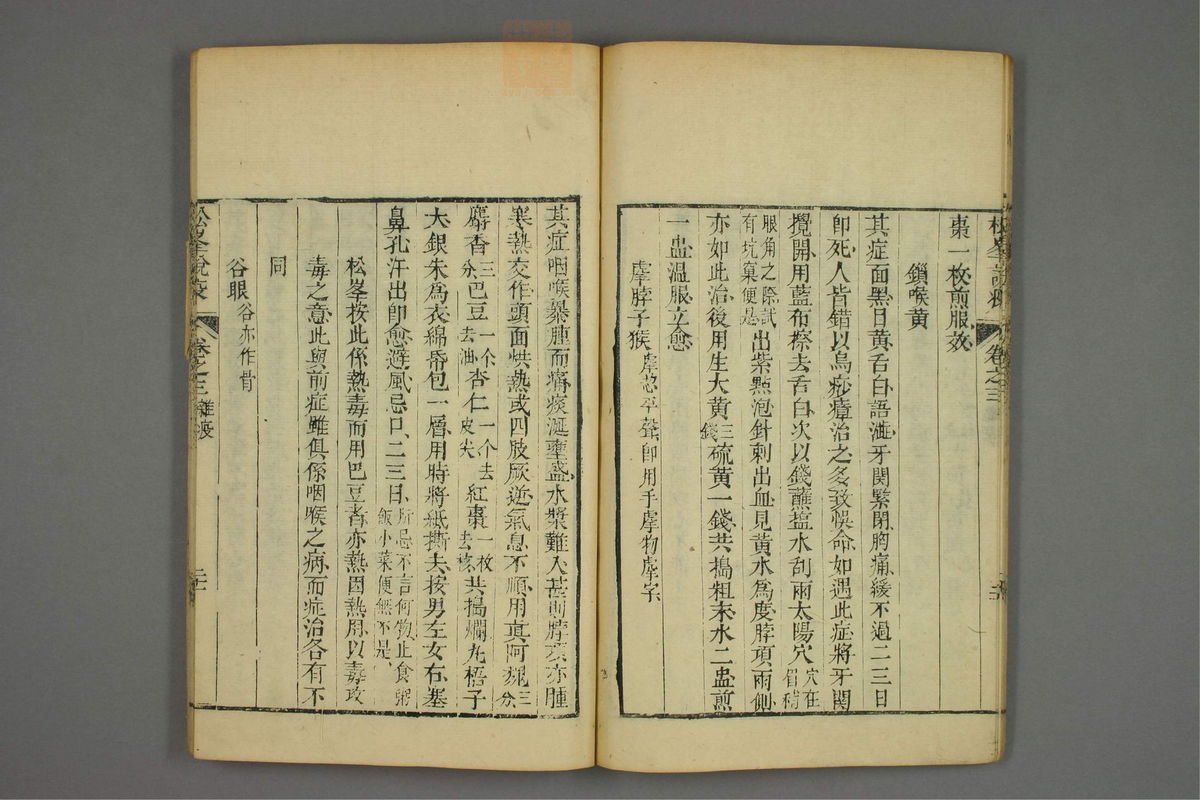 松峯說疫 卷之三 二十
棗一枚煎服效
鎖喉黃
其症面黑目黃舌白語澁牙關緊閉胸痛緩不過二三日
卽死人皆錯以烏痧瘴治之多致悞命如遇此症將牙關
攪開用藍布擦去舌白次以錢蘸塩水刮兩太陽穴穴在眉稍
眼角之際試有坑窠便是出紫點泡針刺出血見黃水爲度脖項兩側
亦如此治後用生大黃三錢硫黃一錢共搗粗末水二盅煎
一盅溫服立愈
虖脖子猴虖愡平聲卽用手虖物虖字
其症咽喉暴腫而痛痰涎壅盛水漿難入甚則脖項亦腫
寒熱交作頭面烘熱或四肢厥逆氣息不順用眞阿魏三分
麝香三分巴豆一个去油杏仁一个去皮尖紅棗一枚去核共搗爛丸梧子
大銀朱爲衣綿帋包一層用時將紙撕去按男左女右塞
鼻孔汗出卽愈避風忌口二三日所忌不言何物止食粥飯小菜便無不是
松峯按此係熱毒而用巴豆者亦熱因熱用以毒攻
毒之意此與前症雖俱係咽喉之病而症治各有不
同
谷眼谷亦作骨
松峯說疫 卷之三 雜疫 二十一